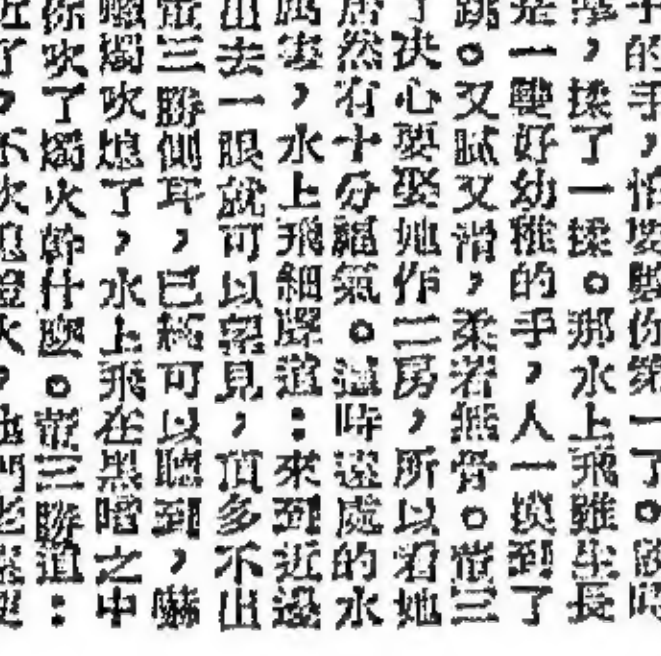 手的手，怕要數你第一了。
，揉了一揉。那水上飛雖生長
是一雙好幼稚的手，人一摸到了
跳。又膩又滑，柔若無骨。常三
了決心要娶她作二房，所以看她
居然有十分福氣。這時遠處的水
，水上飛細聲道：來到近邊
出去一眼就可以望見，頂多不出
常三勝側耳，已經可以聽到，嚇
燭吹熄了，水上飛在黑暗之中
你吹了燭火幹什麼。常三勝道：
近了，不吹熄燈火，他們老